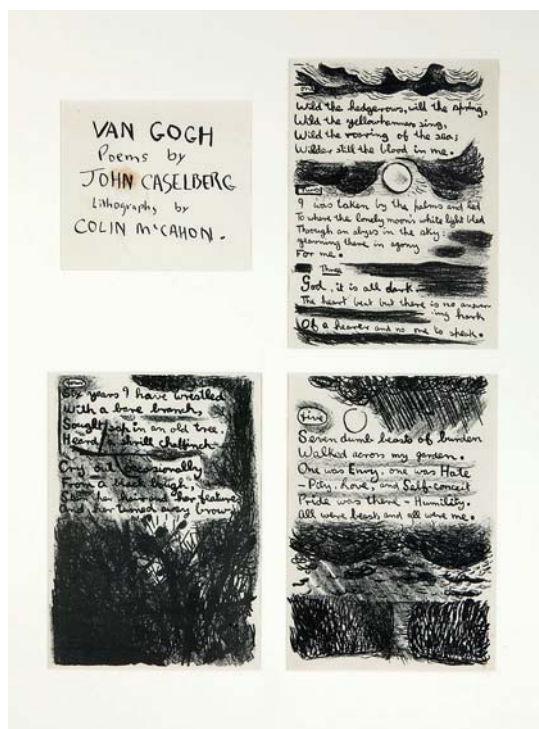 VAN GOGH
Poems by
JOHN CASELBERG
Lithographs by
COLIN McCAHON.
one
Wild the hedgerows, wild the spring,
Wild the yellowhammers sing,
Wild the roaring of the sea;
Wilder still the blood in me.
Two
I was taken by the palms and led
To where the lonely moon's white light bled
Through an abyss in the sky:
yearning there in agony
For me.
Three
God, it is all dark.
The heart beat but there is no answer
-ing hark
Of a hearer and no one to speak.
Four
Six years I have wrestled
With a bare branch,
Sought sap in an old tree.
Heard a shrill chaffinch
Cry out occasionally
From a black bough;
her hair and her feature
And her turned away brow.
Five
Seven dumb beasts of burden
Walked across my garden.
One was Envy, one was Hate
- Pity, Love, and Self-conceit
Pride was there - Humility.
All were beasts and all were me.